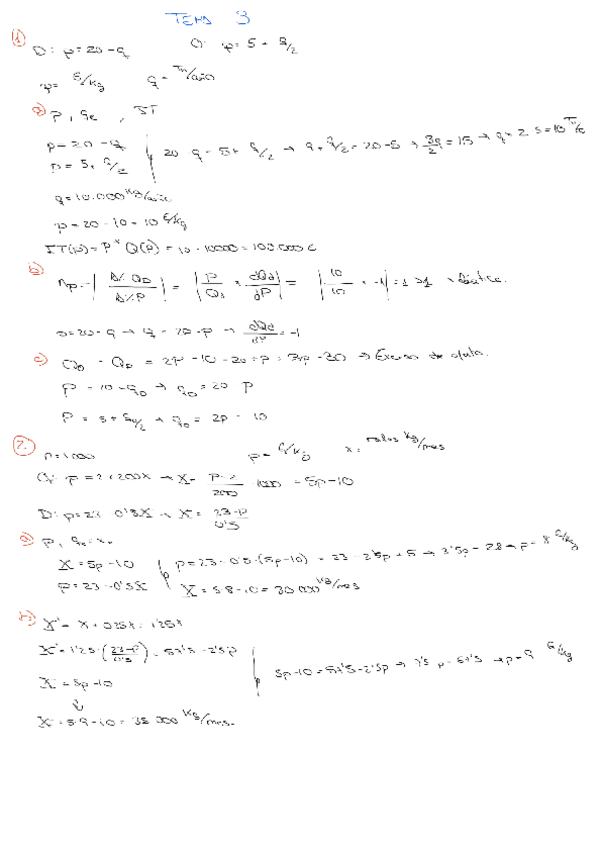 TEMA 3
① D: p = 20 - q O: p = 5 + q/2
p = €/kg q = Tm/año
a) p, qe, IT
p = 20 - q
p = 5 + q/2 20 - q = 5 + q/2 → q + q/2 = 20 - 5 → 3q/2 = 15 → q =
q = 10.000 kg/año
p = 20 - 10 = 10 €/kg
IT(p) = p * Q(p) = 10 · 10000 = 100.000 €
b) ηp = | Δ% QD / Δ% P | = | P/Qd * dQd/dP | = | 10/10 * -1 | = 1
p = 20 - q → q = 20 - p → dQd/dP = -1
c) Qo - QD = 2p - 10 - 20 + p = 3p - 30 → Exceso de oferta.
P = - qD → qD = 20 - p
P = 5 + qo/2 → qo = 2p - 10
2. n = 1000 p = €/kg x = miles kg/mes
O: p = 2 + 200x → x = p - 2 / 200 · 1000 = 5p - 10
D: p = 23 - 0'5X → X = 23 - p / 0'5
a) p,
X = 5p - 10
p = 23 - 0'5X p = 23 - 0'5 · (5p - 10) = 23 - 2'5p + 5 → 3'5p = 28 → p = 8 €/kg
X = 5·8 - 10 = 30 000 kg/mes
b) X' = X + 0'25X = 1'25X
X' = 1'25 · (23 - p / 0'5) = 57'5 - 2'5p
X = 5p - 10 5p - 10 = 57'5 - 2'5p → 7'5 p = 67'5 → p = 9 €/kg
X = 5·9 - 10 = 35 000 kg/mes.